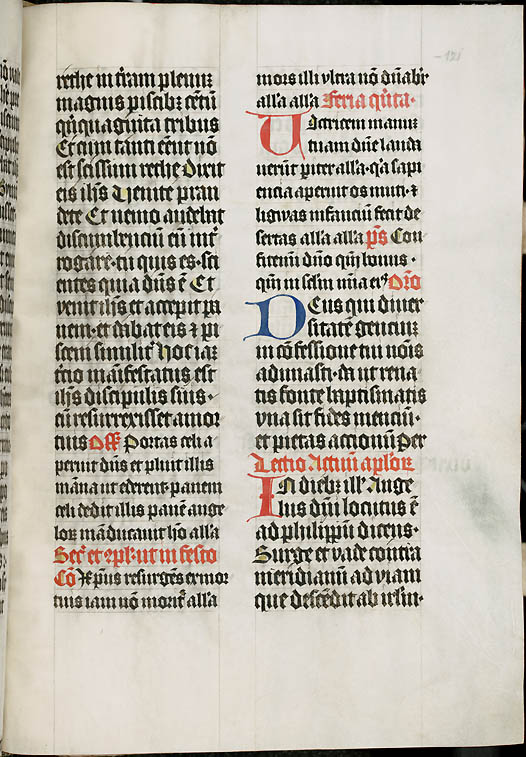 121
rethe in t̄ram plenuʒ
magnis piscibʒ cētū
qͥnquaginta tribus
Et cum tanti eēnt nō
est scissum rethe Dicit
eis ih̄s Uenite pran
dete Et nemo audebat
discumbenciū eū int̄
rogare·tu quis es·sci
entes quia dn̄s ē Et
venit ih̄s et accepit pa
nem·et dabat eis ⁊ pi
scem similit̄ Hoc iaꝫ
t̄cio māifestatus est
ih̄s discipulis suis·
cū resurrexisset amor
tuis Off̄ Portas celi a
peruit dn̄s et pluit illis
māna ut ederent· panem
celi dedit illis panē ange
loꝝ māducauit hō all̄a
Secͬ et 9pl· ut in festo
Cō Xp̄us resurgēs ex mor
tuis iam nō morit̄ all̄a
mors illi vltra nō dn̄abit̄
all̄a all̄a Feria qͥnta·
Uictricem manuʒ
tuam dn̄e lauda
uerūt pariter all̄a·qͥa sapi
encia aperuit os muti·⁊
lignwas infanciū fecit de
sertas all̄a all̄a pͫs Con
fitemī dn̄o qm̄ bonus·
qm̄ in sclm̄ mīa eiꝰ Or̄o
Deus qui diuer
sitatē genciuʒ
in cōfessione tui noīs
adunasti·da ut rena
tis fonte baptismatis
vna sit fides menciū·
et pietas accionū Per
Lectio Actuū aploꝝ
In diebʒ ill̄ Ange
lus dn̄i locutus ē
ad philippū dicens·
Surge et vade contra
meridianū ad viam
que descēdit ab irlm̄·